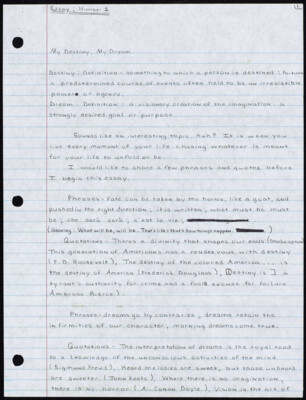 Essay: Number 2
1
My Destiny, My Dream
Destiny: Definition - something to which a person is destined: fortune
a predetermined course of events often held to be an irresistible
power or agency.
Dream: Definition: a visionary creation of the imagination: a
strongly desired goal or purpose
Sounds like an interesting topic, huh? It is when you
live every moment of your life chasing whatever is meant
for your life to unfold or be.
I would like to share a few phrases and quotes before
I begin this essay.
Phrases - Fate can be taken by the horns, like a goat, and
pushed in the right direction; it is written; what must be must
be; che sara sara; c'est la vie;
(Meaning: What will be, will be. That's life: that's how things happen.
Quotations - There's a divinity that shapes our ends
This generation of Americans has a rendezvous with destiny
(F.D. Roosevelt), The destiny of the colored America ... is
the destiny of America (Frederick Douglass), [Destiny is] a
tyrant's authority for crime and a fool's excuse for failure
Ambrose Bierce).
Phrases - dreams go by contraries, dreams retain the
infirmities of our character, morning dreams come true.
Quotations - The interpretation of dreams is the royal road
to a knowledge of the unconscious activities of the mind
(Sigmund Freud), Heard melodies are sweet, but those unheard
are sweeter (John Keats), Where there is no imagination,
there is no horror (A. Conan Doyle), Vision is the art of